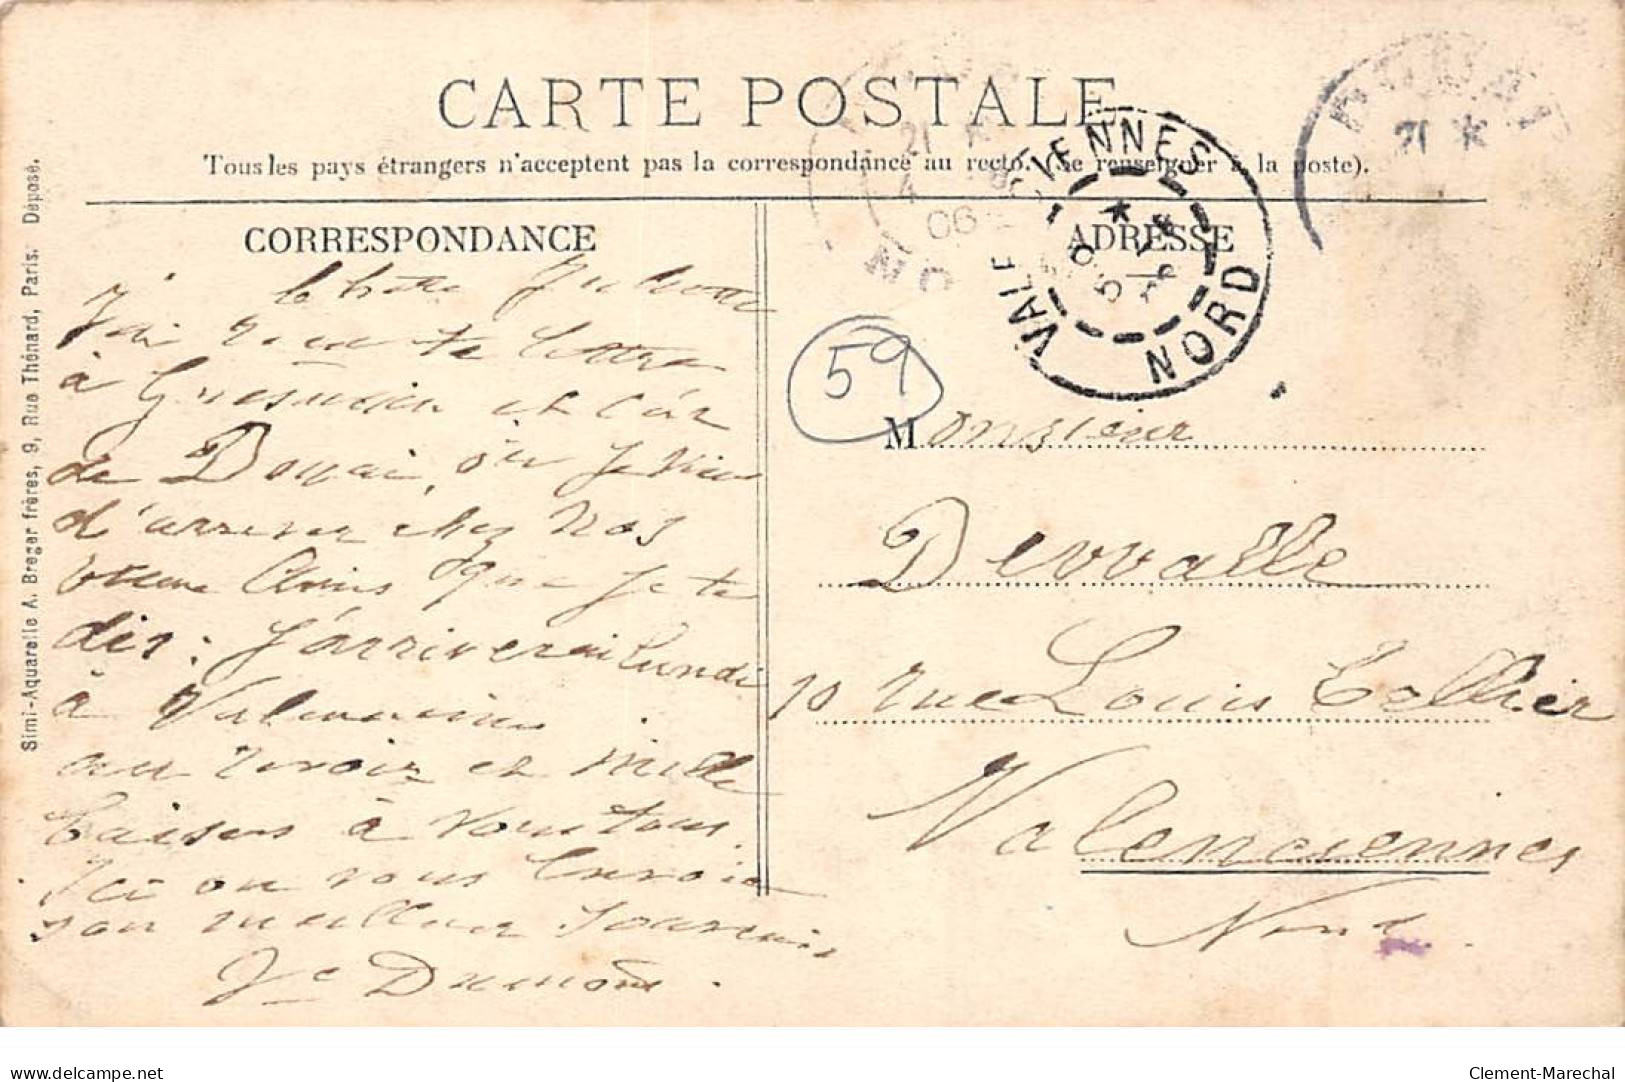 CARTE POSTALE
Tous les pays étrangers n'acceptent pas la correspondance au recto. (Se renseigner à la poste).
CORRESPONDANCE
ADRESSE
Juliette
J'ai reçu ta lettre
à et c'est
de Douai, où je viens
d'arriver chez nos
amis que je te
dis: J'arriverai Lundi
à Valenciennes
au revoir et mille
baisers à vous tous.
Ici on vous envoie
son meilleur souvenir
Ve Dumont.
59
Monsieur
Dervalle
10 rue Louis Cellier
Valenciennes
Nord.
VALENCIENNES
NORD
DOUAI
21 *
21
4
06
NO
Simi-Aquarelle A. Breger frères, 9, Rue Thénard, Paris. Déposé.
delcampe.net
Clement-Marechal